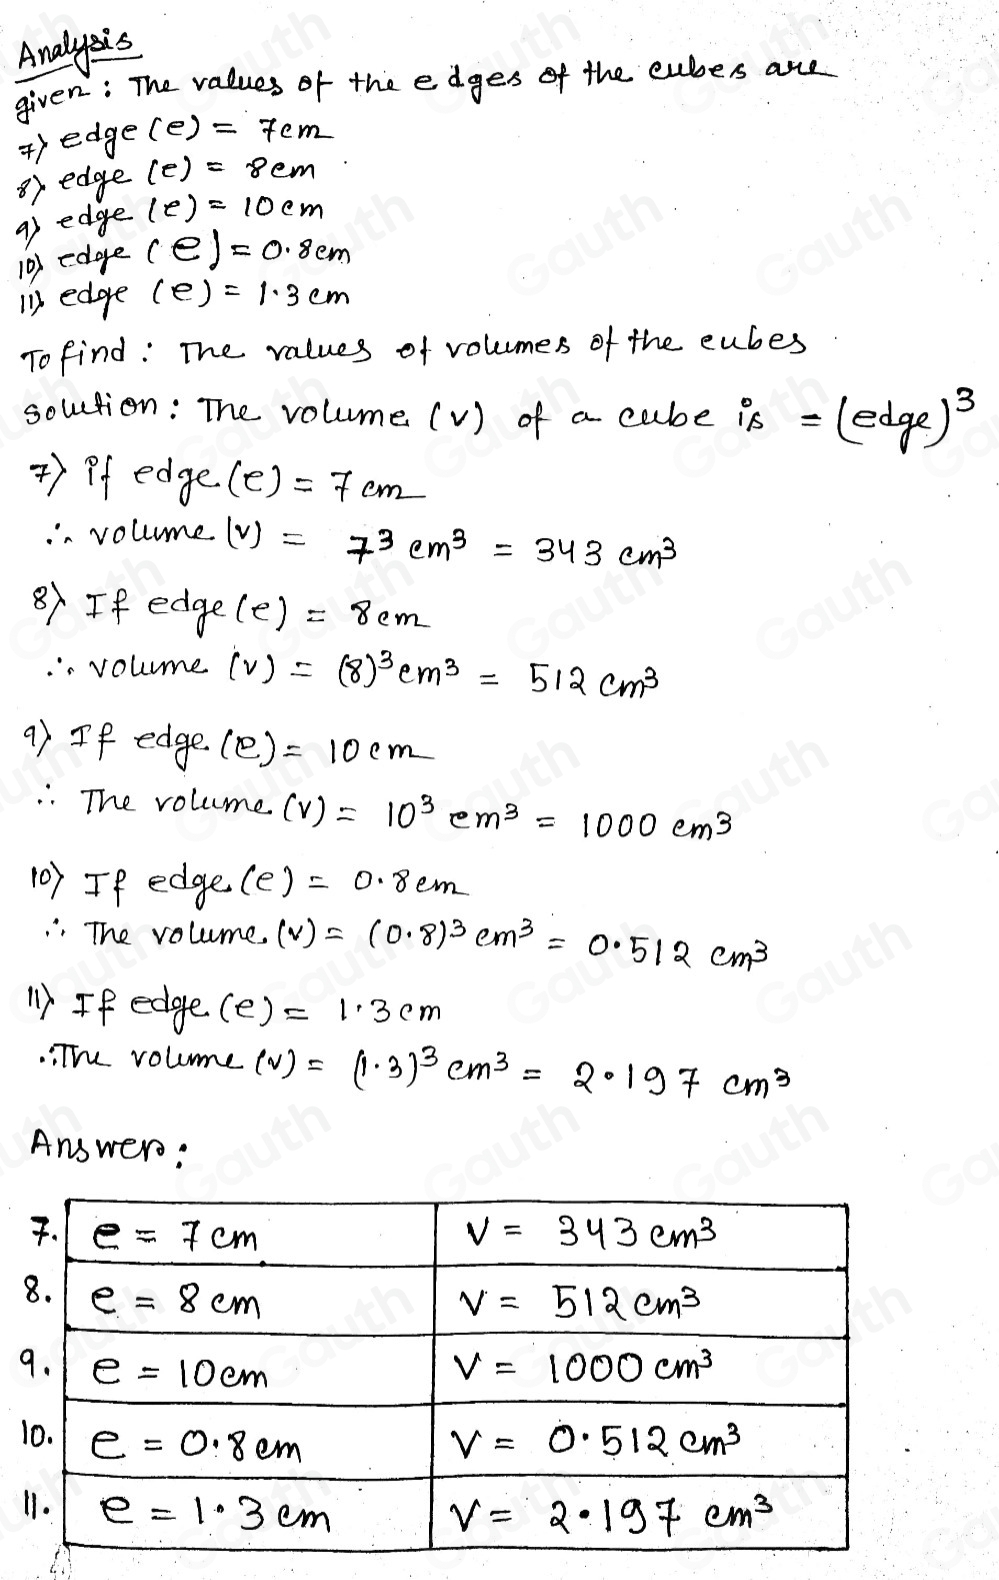 Analysis
given : The values of the edges of the cubes are
7) edge (e) = 7cm
8) edge (e) = 8cm
9) edge (e) = 10cm
10) edge (e) = 0.8cm
11) edge (e) = 1.3cm
To find : The values of volumes of the cubes
solution : The volume (v) of a cube is = (edge)³
7) if edge (e) = 7cm
∴ volume (v) = 7³ cm³ = 343 cm³
8) If edge (e) = 8cm
∴ volume (v) = (8)³ cm³ = 512 cm³
9) If edge (e) = 10cm
∴ The volume (v) = 10³ cm³ = 1000 cm³
10) If edge (e) = 0.8cm
∴ The volume (v) = (0.8)³ cm³ = 0.512 cm³
11) If edge (e) = 1.3cm
∴ The volume (v) = (1.3)³ cm³ = 2.197 cm³
Answer :
7. e = 7cm V = 343 cm³
8. e = 8cm V = 512 cm³
9. e = 10cm V = 1000 cm³
10. e = 0.8cm V = 0.512 cm³
11. e = 1.3cm V = 2.197 cm³